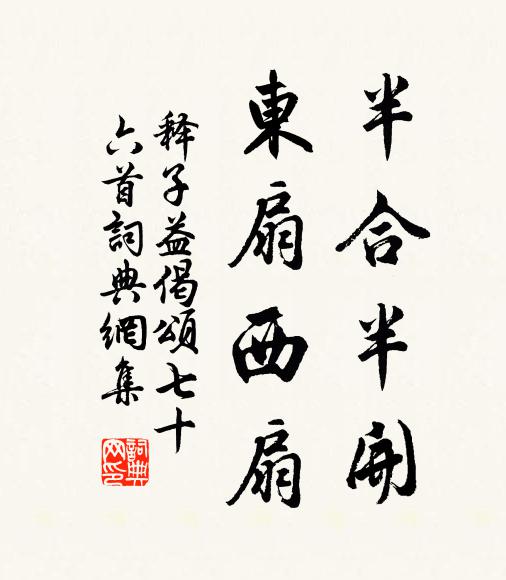 半合半開
東扇西扇
释子益偈頌七十
六首詞典網集
詞典
网印